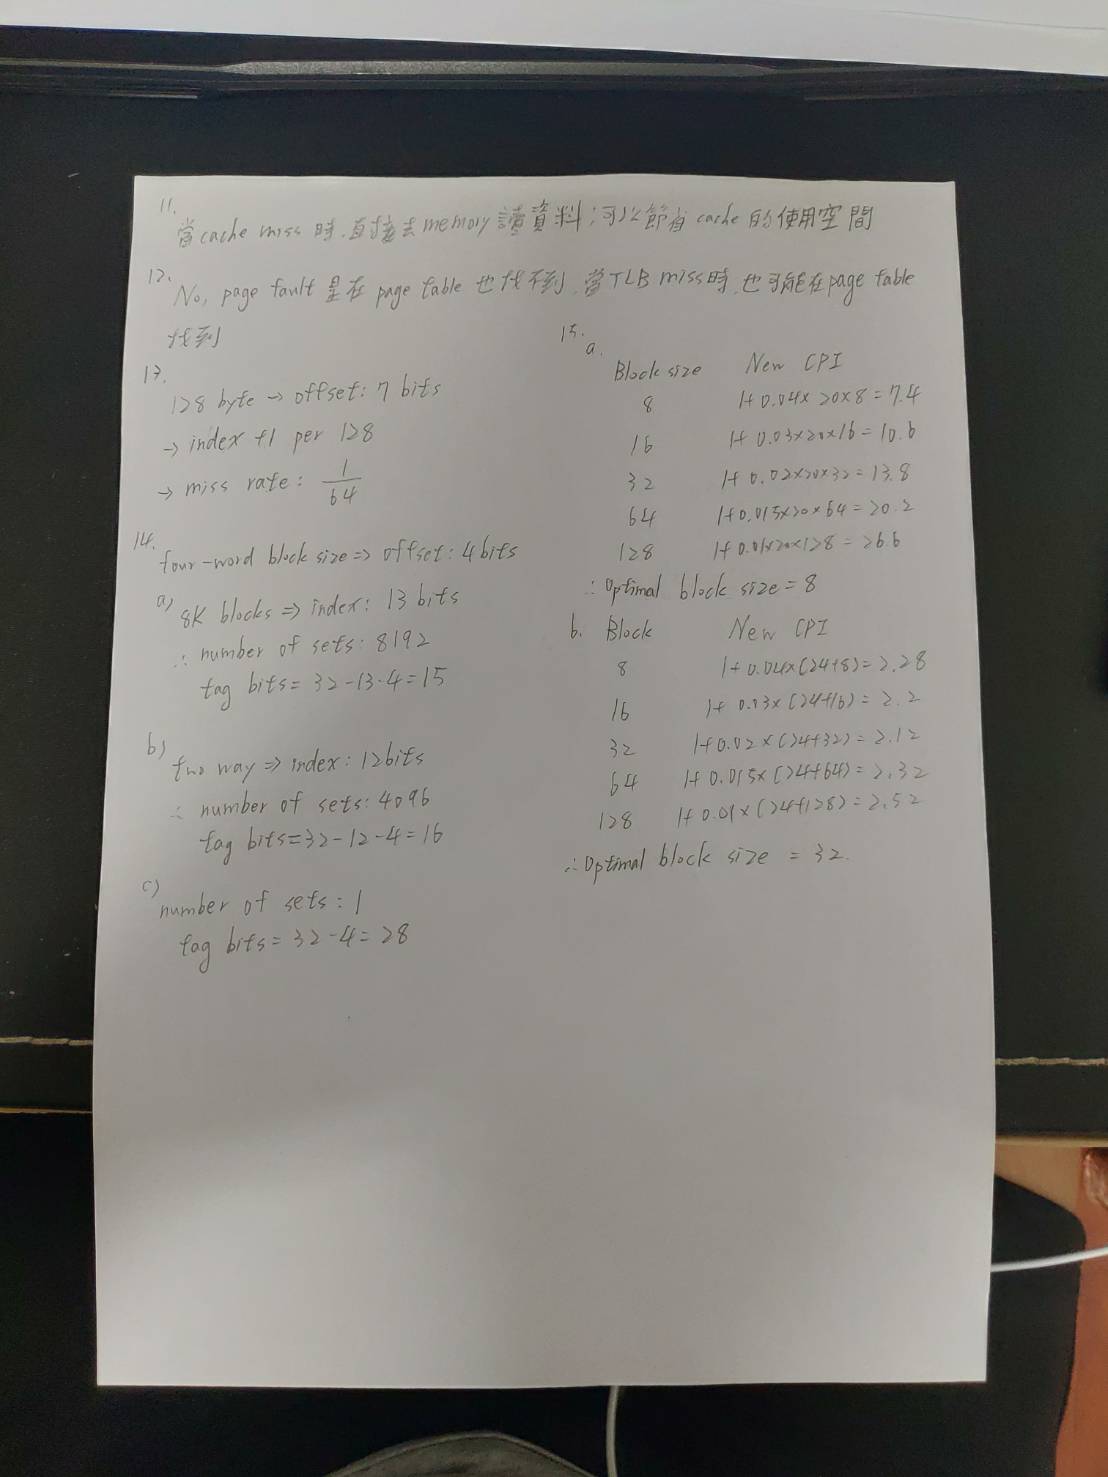 11.
當 cache miss 時,直接去 memory 讀資料;可以節省 cache 的使用空間
12.
No, page fault 是在 page table 也找不到,當TLB miss時,也可能在page table
找到
13.
128 byte → offset: 7 bits
→ index +1 per 128
→ miss rate: 1/64
14.
four-word block size => offset: 4 bits
a) 8K blocks => index: 13 bits
∴ number of sets: 8192
tag bits = 32-13-4=15
b) two way => index: 12bits
∴ number of sets: 4096
tag bits=32-12-4=16
c) number of sets: 1
tag bits = 32-4=28
15.
a.
Block size New CPI
8 1+0.04×20×8=7.4
16 1+0.03×20×16=10.6
32 1+0.02×20×32=13.8
64 1+0.015×20×64=20.2
128 1+0.01×20×128=26.6
∴ Optimal block size=8
b. Block New CPI
8 1+0.04×(24+8)=2.28
16 1+0.03×(24+16)=2.2
32 1+0.02×(24+32)=2.12
64 1+0.015×(24+64)=2.32
128 1+0.01×(24+128)=2.52
∴ Optimal block size = 32.